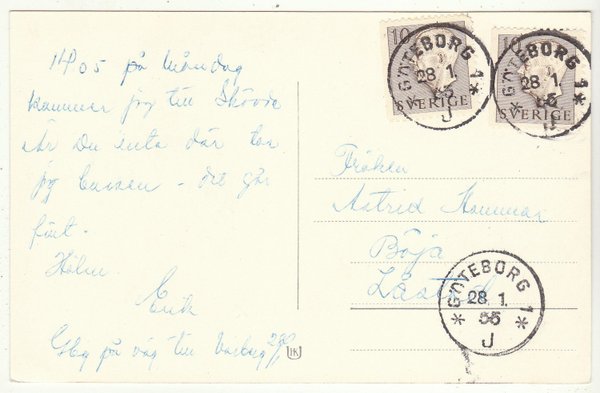 14.05 på Måndag
kommer jag till Skövde
är Du inte där tar
jag bussen - det går
fint.
Hälsn.
Erik
Gbg på väg till Varberg 28/1
IK
10
SVERIGE
10
SVERIGE
GÖTEBORG 1
28 1.
55
J
GÖTEBORG 1
28 1.
55
J
Fröken
Astrid Hammar
Böja
GÖTEBORG 1
28. 1.
55
J